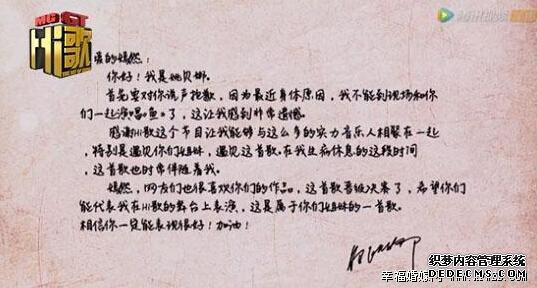 Hi歌
爱的嫣然：
你好！我是姚贝娜。
首先要对你说声抱歉，因为最近身体原因，我不能到现场和你
们一起演唱《鱼》了，这让我感到非常遗憾。
感谢Hi歌这个节目让我能够与这么多的实力音乐人相聚在一起
，特别是遇见你们姐妹，遇见这首歌。在我生病休息的这段时间
，这首歌也时常伴随着我。
嫣然，网友们也很喜欢你们的作品，这首歌晋级决赛了，希望你们
能代表我在Hi歌的舞台上表演，这是属于你们姐妹的一首歌。
相信你一定能表现很好！加油！
织梦内容管理系统
DEDECMS.COM